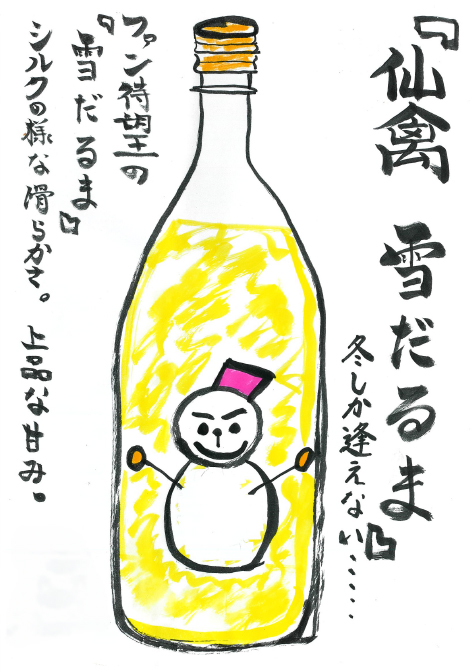 『仙禽 雪だるま』
冬しか逢えない……
ファン待望の
『雪だるま』
シルクの様な滑らかさ。上品な甘み。